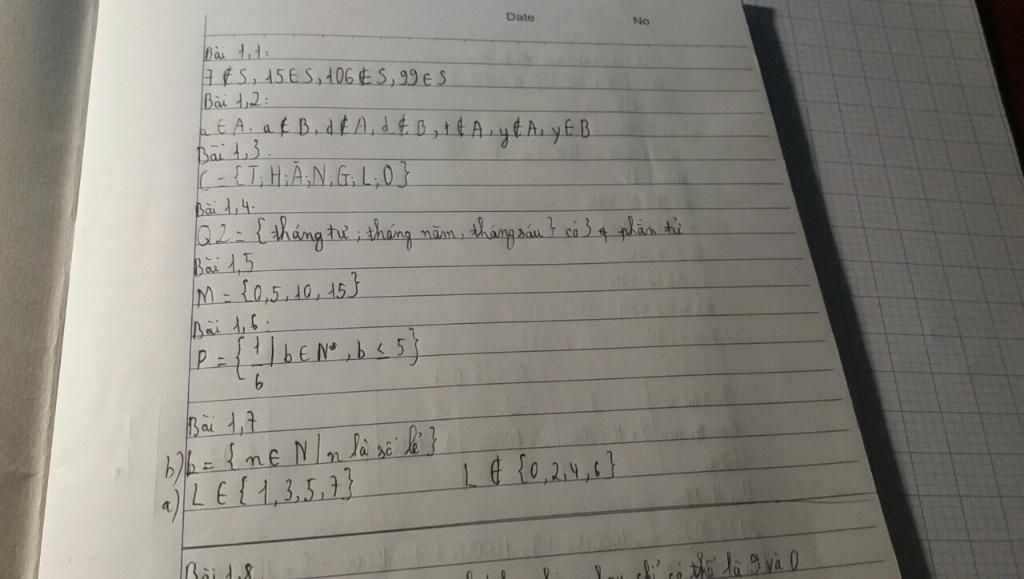 Date No
Bài 1,1:
7 ∉ S, 15 ∈ S, 106 ∉ S, 99 ∈ S
Bài 1,2:
a ∈ A, a ∉ B, d ∉ A, d ∉ B, t ∉ A, y ∉ A, y ∈ B
Bài 1,3.
C = {T; H; Ă; N; G; L; O}
Bài 1,4.
Q2 = { tháng tư; tháng năm, tháng sáu } có 3 phần tử
Bài 1,5
M = {0, 5, 10, 15}
Bài 1,6:
P = { 1/b | b ∈ N*, b ≤ 5}
Bài 1,7
b) b = { n ∈ N | n là số lẻ }
a) L ∈ { 1, 3, 5, 7} L ∉ {0, 2, 4, 6}
Bài 1,8
chỉ có thể là 9 và 0